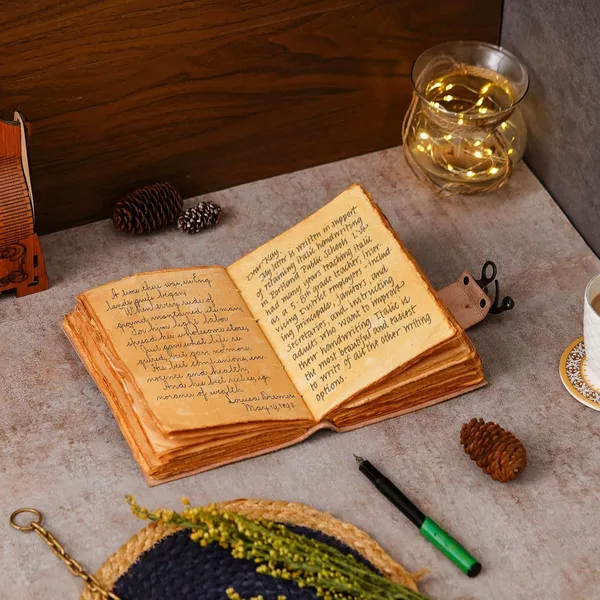 A time there was,
lands griefs began,
When every rude of
ground maintained its man,
For him light labor
spread her wholesome store,
Just gave what life re
quired, but gave no more.
His best companions, in
nocence and health;
And his best riches, ig
norance of wealth.
Louisa
May 19,
Dear Kay
My letter is written in support
of retaining italic handwriting
in Portland Public Schools. I've
had many years teaching Italic
as a 5-8th grade teacher, inser
vicing District employees, includ
ing principals, janitors, and
secretaries, and instructing
adults who want to improve
their handwriting. Italic is
the most beautiful and easiest
to writ of all the other writing
options.